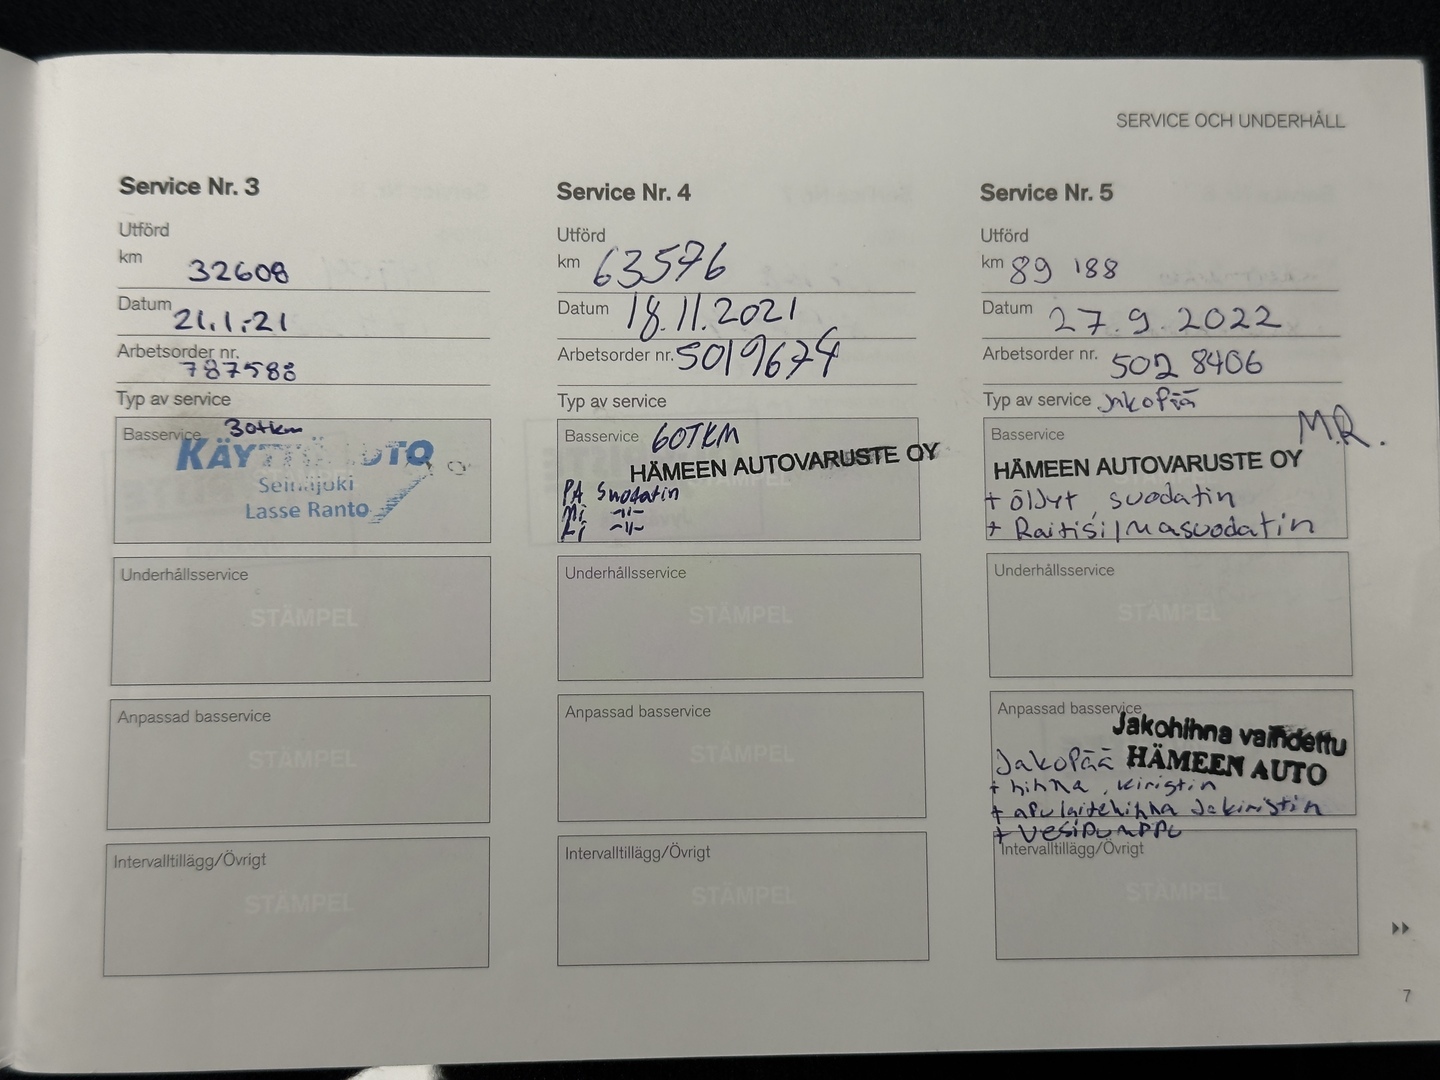 SERVICE OCH UNDERHÅLL
Service Nr. 3
Utförd
km 32608
Datum 21.1.-21
Arbetsorder nr. 787588
Typ av service
Basservice 30tkm
KÄYTTÖAUTO
Seinäjoki
Lasse Ranto
Underhållsservice
STÄMPEL
Anpassad basservice
STÄMPEL
Intervalltillägg/Övrigt
STÄMPEL
Service Nr. 4
Utförd
km 63576
Datum 18.11.2021
Arbetsorder nr. 5019674
Typ av service
Basservice 60TKM
HÄMEEN AUTOVARUSTE OY
PA Suodatin
Mi -"-
Li -"-
Underhållsservice
STÄMPEL
Anpassad basservice
STÄMPEL
Intervalltillägg/Övrigt
STÄMPEL
Service Nr. 5
Utförd
km 89 188
Datum 27.9.2022
Arbetsorder nr. 502 8406
Typ av service Jakopää
Basservice M.R.
HÄMEEN AUTOVARUSTE OY
+ öljyt, suodatin
+ Raitisilmasuodatin
Underhållsservice
STÄMPEL
Anpassad basservice
Jakohihna vaihdettu
Jakopää HÄMEEN AUTO
+ hihna, kiristin
+ apulaitehihna ja kiristin
+ vesipumppu
Intervalltillägg/Övrigt
STÄMPEL
7